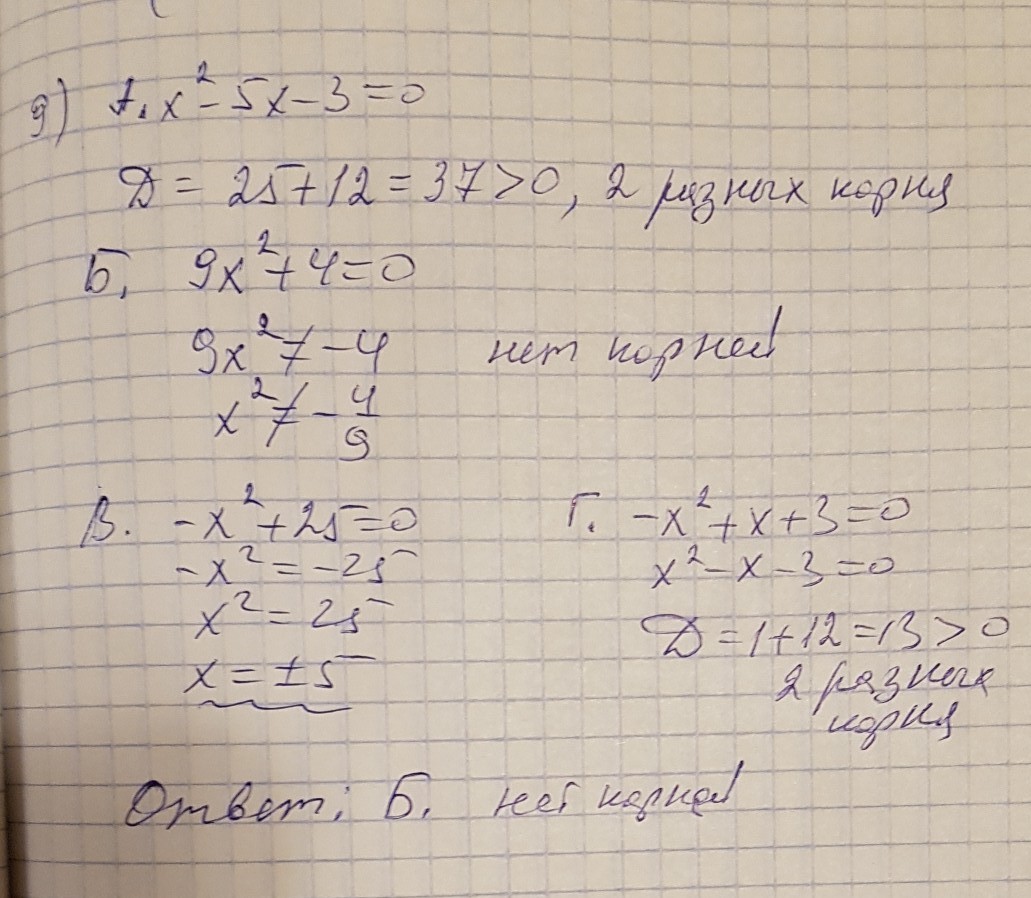 9) А. x² - 5x - 3 = 0
Д = 25 + 12 = 37 > 0, 2 разных корня
Б. 9x² + 4 = 0
9x² ≠ -4 нет корней
x² ≠ -4/9
В. -x² + 25 = 0
-x² = -25
x² = 25
x = ±5
Г. -x² + x + 3 = 0
x² - x - 3 = 0
Д = 1 + 12 = 13 > 0
2 разных
корня
Ответ: Б. нет корней